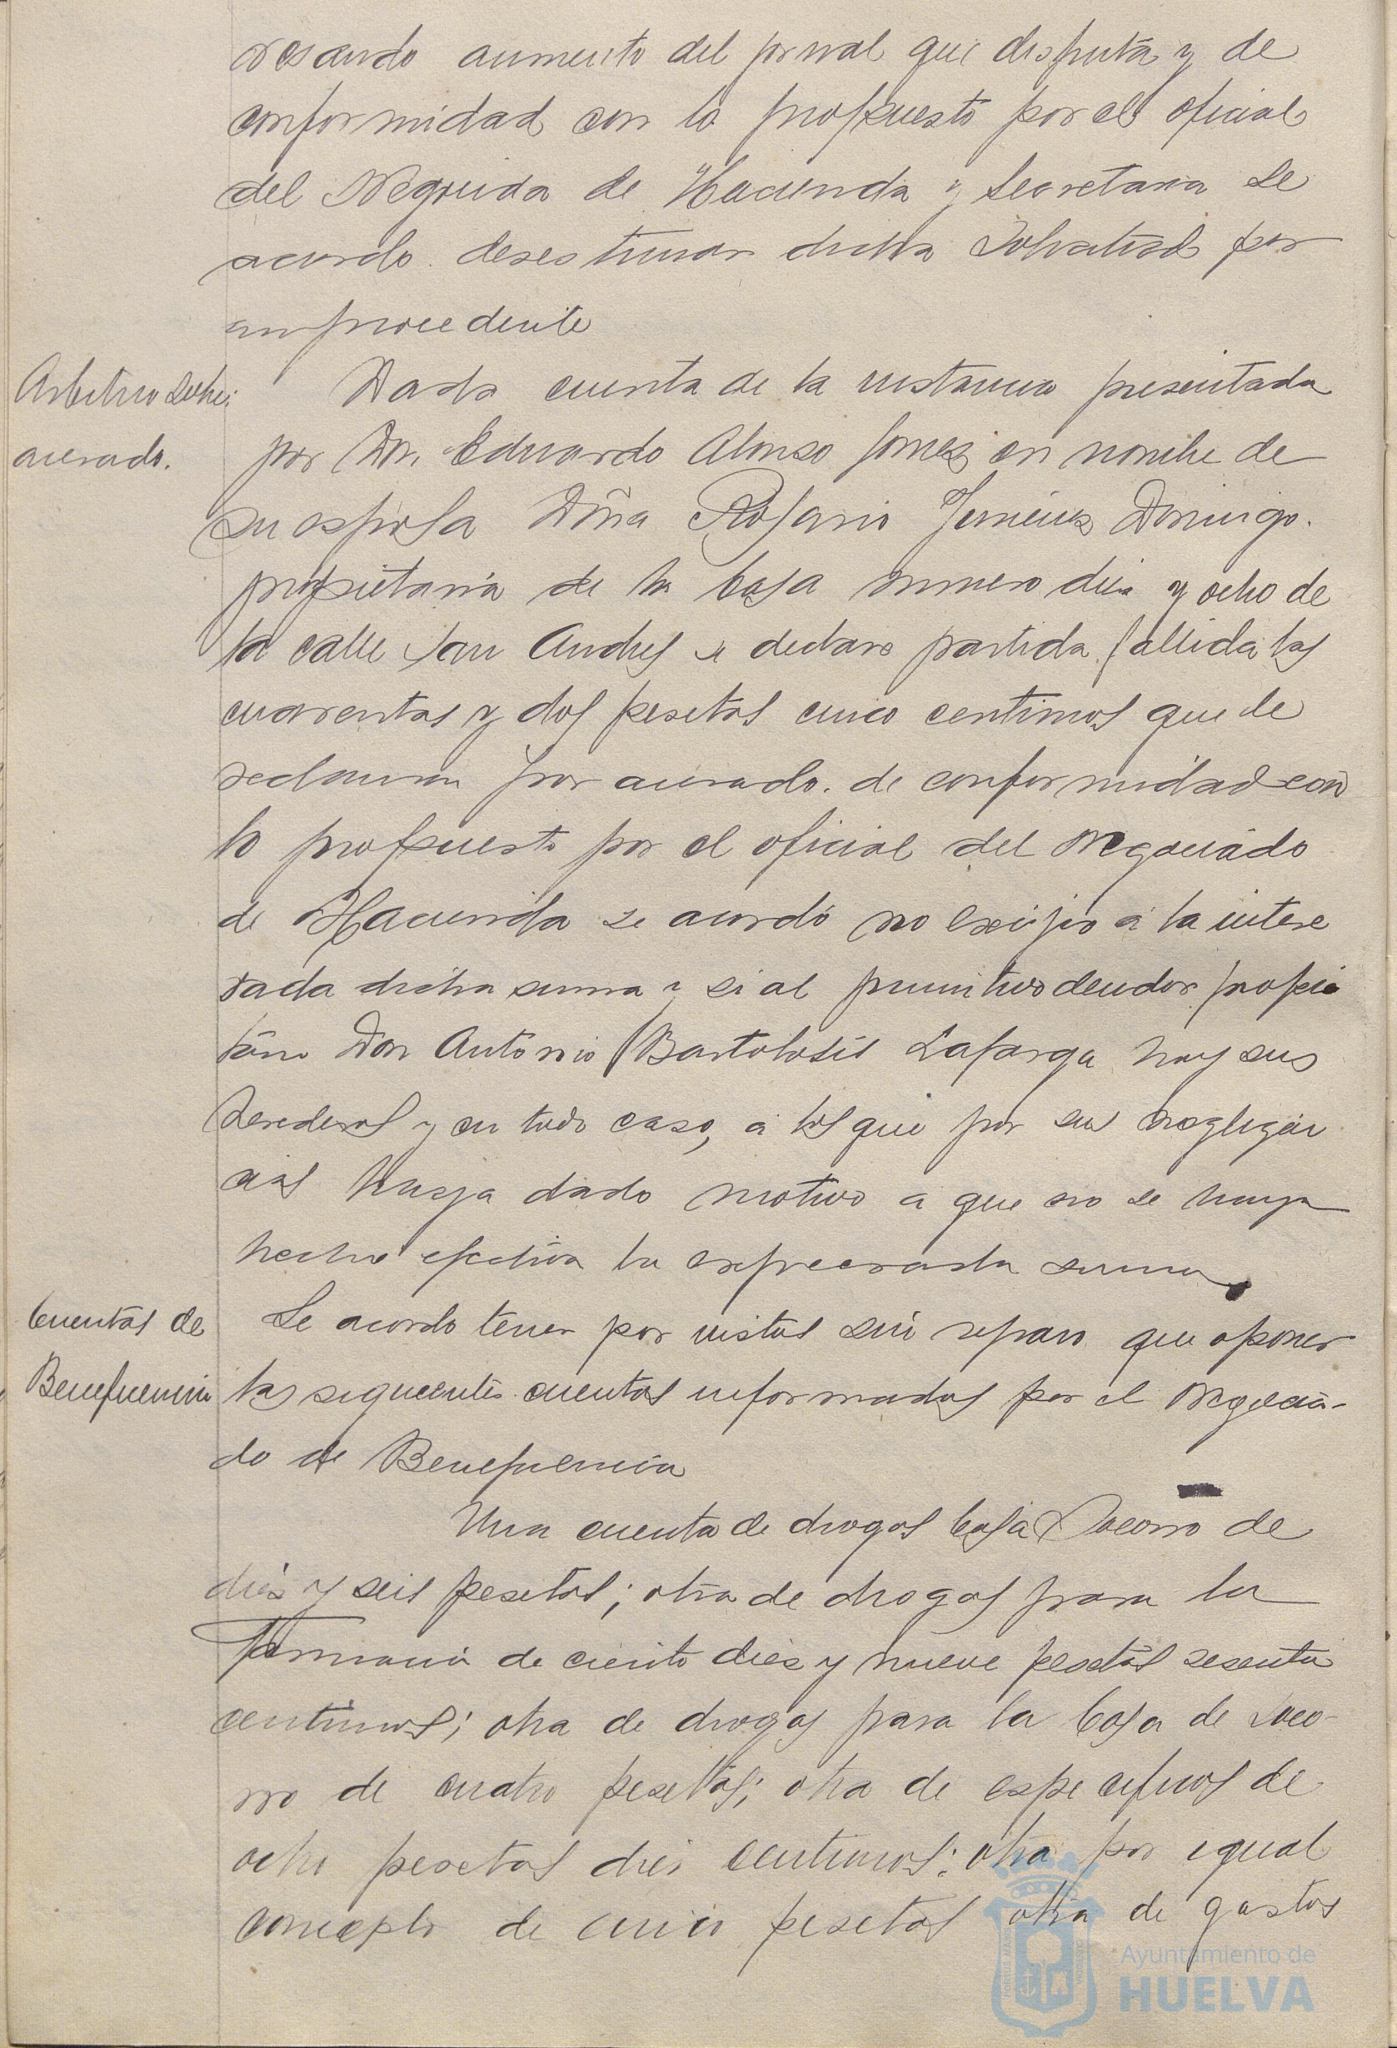 resando aumento del jornal que disfruta y de
conformidad con lo propuesto por el oficial
del Negociado de Hacienda y Secretaria se
acordo desestimar dicha solicitud por
improcedente
Arbitrio sobre
acerado.
Dada cuenta de la instancia presentada
por Don Eduardo Alonso Gomez en nombre de
su esposa Doña Rosario Jimenez Domingo.
propietaria de la Casa numero diez y ocho de
la calle San Andres se declare partida fallida las
cuarentas y dos pesetas cinco centimos que le
reclaman por acerado. de conformidad con
lo propuesto por el oficial del Negociado
de Hacienda se acordó no exijir á la intere
sada dicha suma y si al primitivo deudor propie
tario Don Antonio Bartolosis Lafarga hoy sus
herederos y en todo caso, a los que por sus negligen
cias haya dado motivo a que no se haya
hecho efectiva la expresada suma
Cuentas de
Beneficencia
Se acordo tener por vistas sin reparo que oponer
las siguientes cuentas informadas por el Negocia-
do de Beneficencia
Una cuenta de drogas Casa Socorro de
diez y seis pesetas; otra de drogas para la
Farmacia de ciento diez y nueve pesetas sesenta
centimos; otra de drogas para la Casa de Soco-
rro de cuatro pesetas; otra de especificos de
ocho pesetas diez centimos; otra por igual
concepto de cinco pesetas otra de gastos
Ayuntamiento de
HUELVA